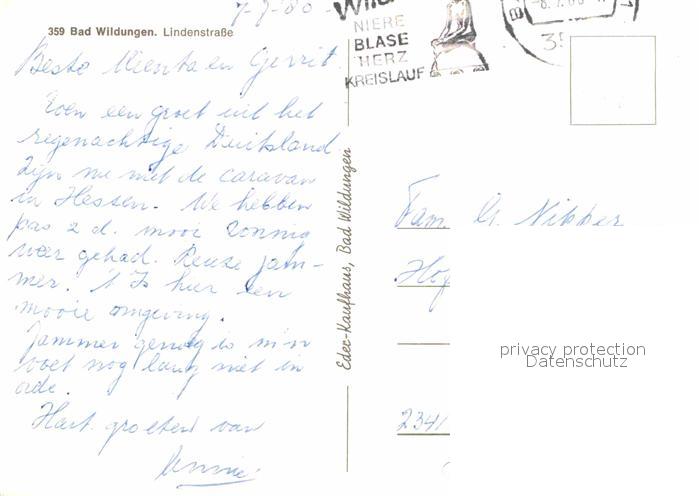 7-7-'80.
359 Bad Wildungen. Lindenstraße
Beste Mienta en Gerrit.
Even een groet uit het
regenachtige Duitsland
Zijn nu met de caravan
in Hessen. We hebben
pas 2 d. mooi zonnig
weer gehad. Reuze jam-
mer. 't Is hier een
mooie omgeving.
Jammer genoeg is m'n
voet nog lang niet in
orde.
Hart. groeten van
Annie
Edec-Kaufhaus, Bad Wildungen
NIERE
BLASE
HERZ
KREISLAUF
Fam. G. Nikker
Hof
2341
privacy protection
Datenschutz